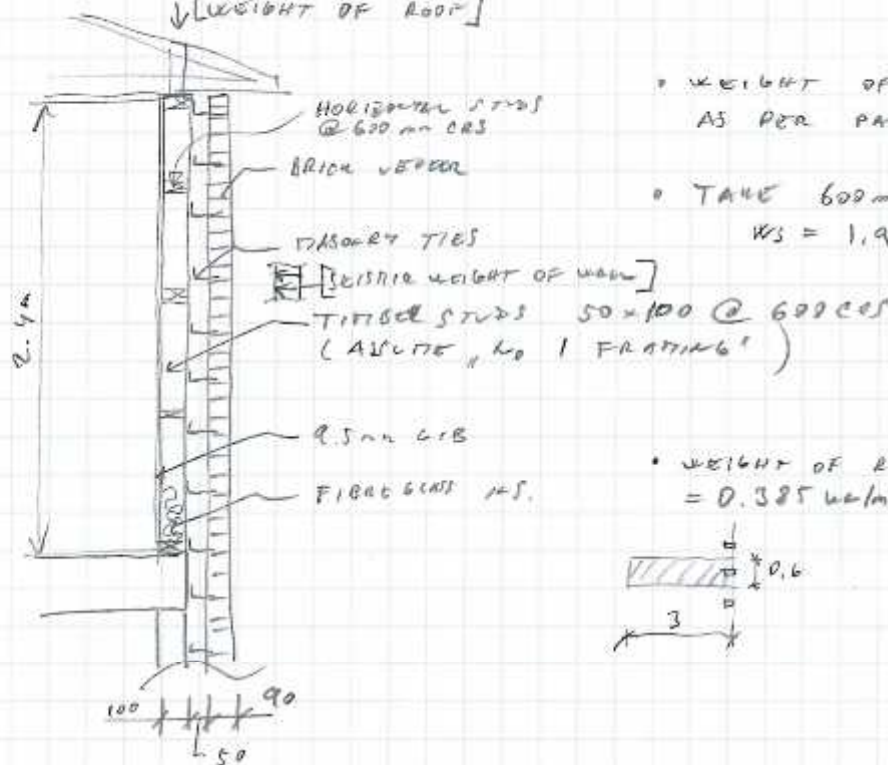 [WEIGHT OF ROOF]
HORIZONTAL STUDS
@ 600 mm CRS
BRICK VENEER
MASONRY TIES
[SEISMIC WEIGHT OF WALL]
TIMBER STUDS 50 x 100 @ 600 CRS
(ASSUME "No 1 FRAMING")
9.5mm GIB
FIBREGLASS INS.
2.4m
100
50
90
• WEIGHT OF
AS PER PA
• TAKE 600 m
WS = 1.9
• WEIGHT OF R
= 0.385 kN/m
0.6
3